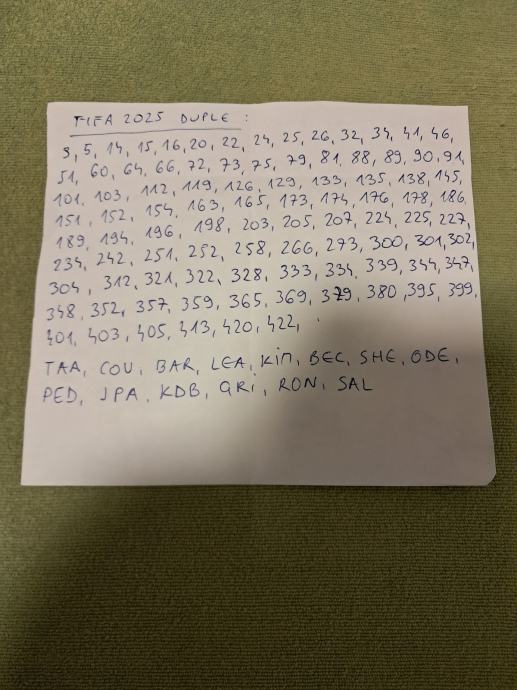 FIFA 2025 DUPLE :
3, 5, 14, 15, 16, 20, 22, 24, 25, 26, 32, 34, 41, 46,
51, 60, 64, 66, 72, 73, 75, 79, 81, 88, 89, 90, 91,
101, 103, 112, 119, 126, 129, 133, 135, 138, 145,
151, 152, 154, 163, 165, 173, 174, 176, 178, 186,
189, 194, 196, 198, 203, 205, 207, 224, 225, 227,
234, 242, 251, 252, 258, 266, 273, 300, 301, 302,
304, 312, 321, 322, 328, 333, 334, 339, 344, 347,
348, 352, 357, 359, 365, 369, 379, 380, 395, 399,
401, 403, 405, 413, 420, 422,
TAA, COU, BAR, LEA, KIM, BEC, SHE, ODE,
PED, JPA, KDB, GRI, RON, SAL